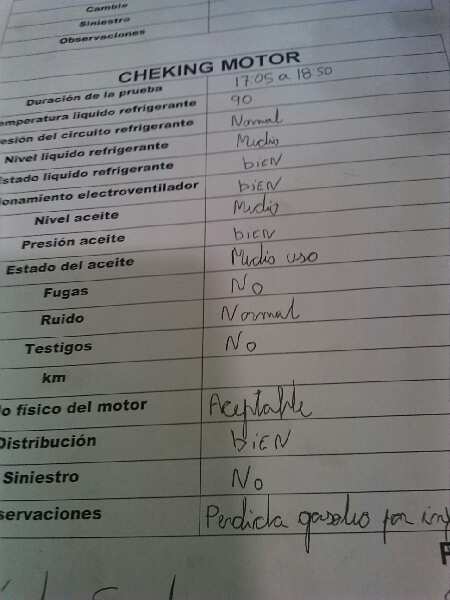 Cambie
Siniestro
Observaciones
CHEKING MOTOR
Duración de la prueba 17:05 a 18:50
emperatura liquido refrigerante 90
esión del circuito refrigerante Normal
Nivel liquido refrigerante Medio
Estado liquido refrigerante biEN
ionamiento electroventilador biEN
Nivel aceite Medio
Presión aceite biEN
Estado del aceite Medio uso
Fugas No
Ruido Normal
Testigos No
km
o físico del motor Aceptable
Distribución biEN
Siniestro No
servaciones Perdida gasoleo por iny